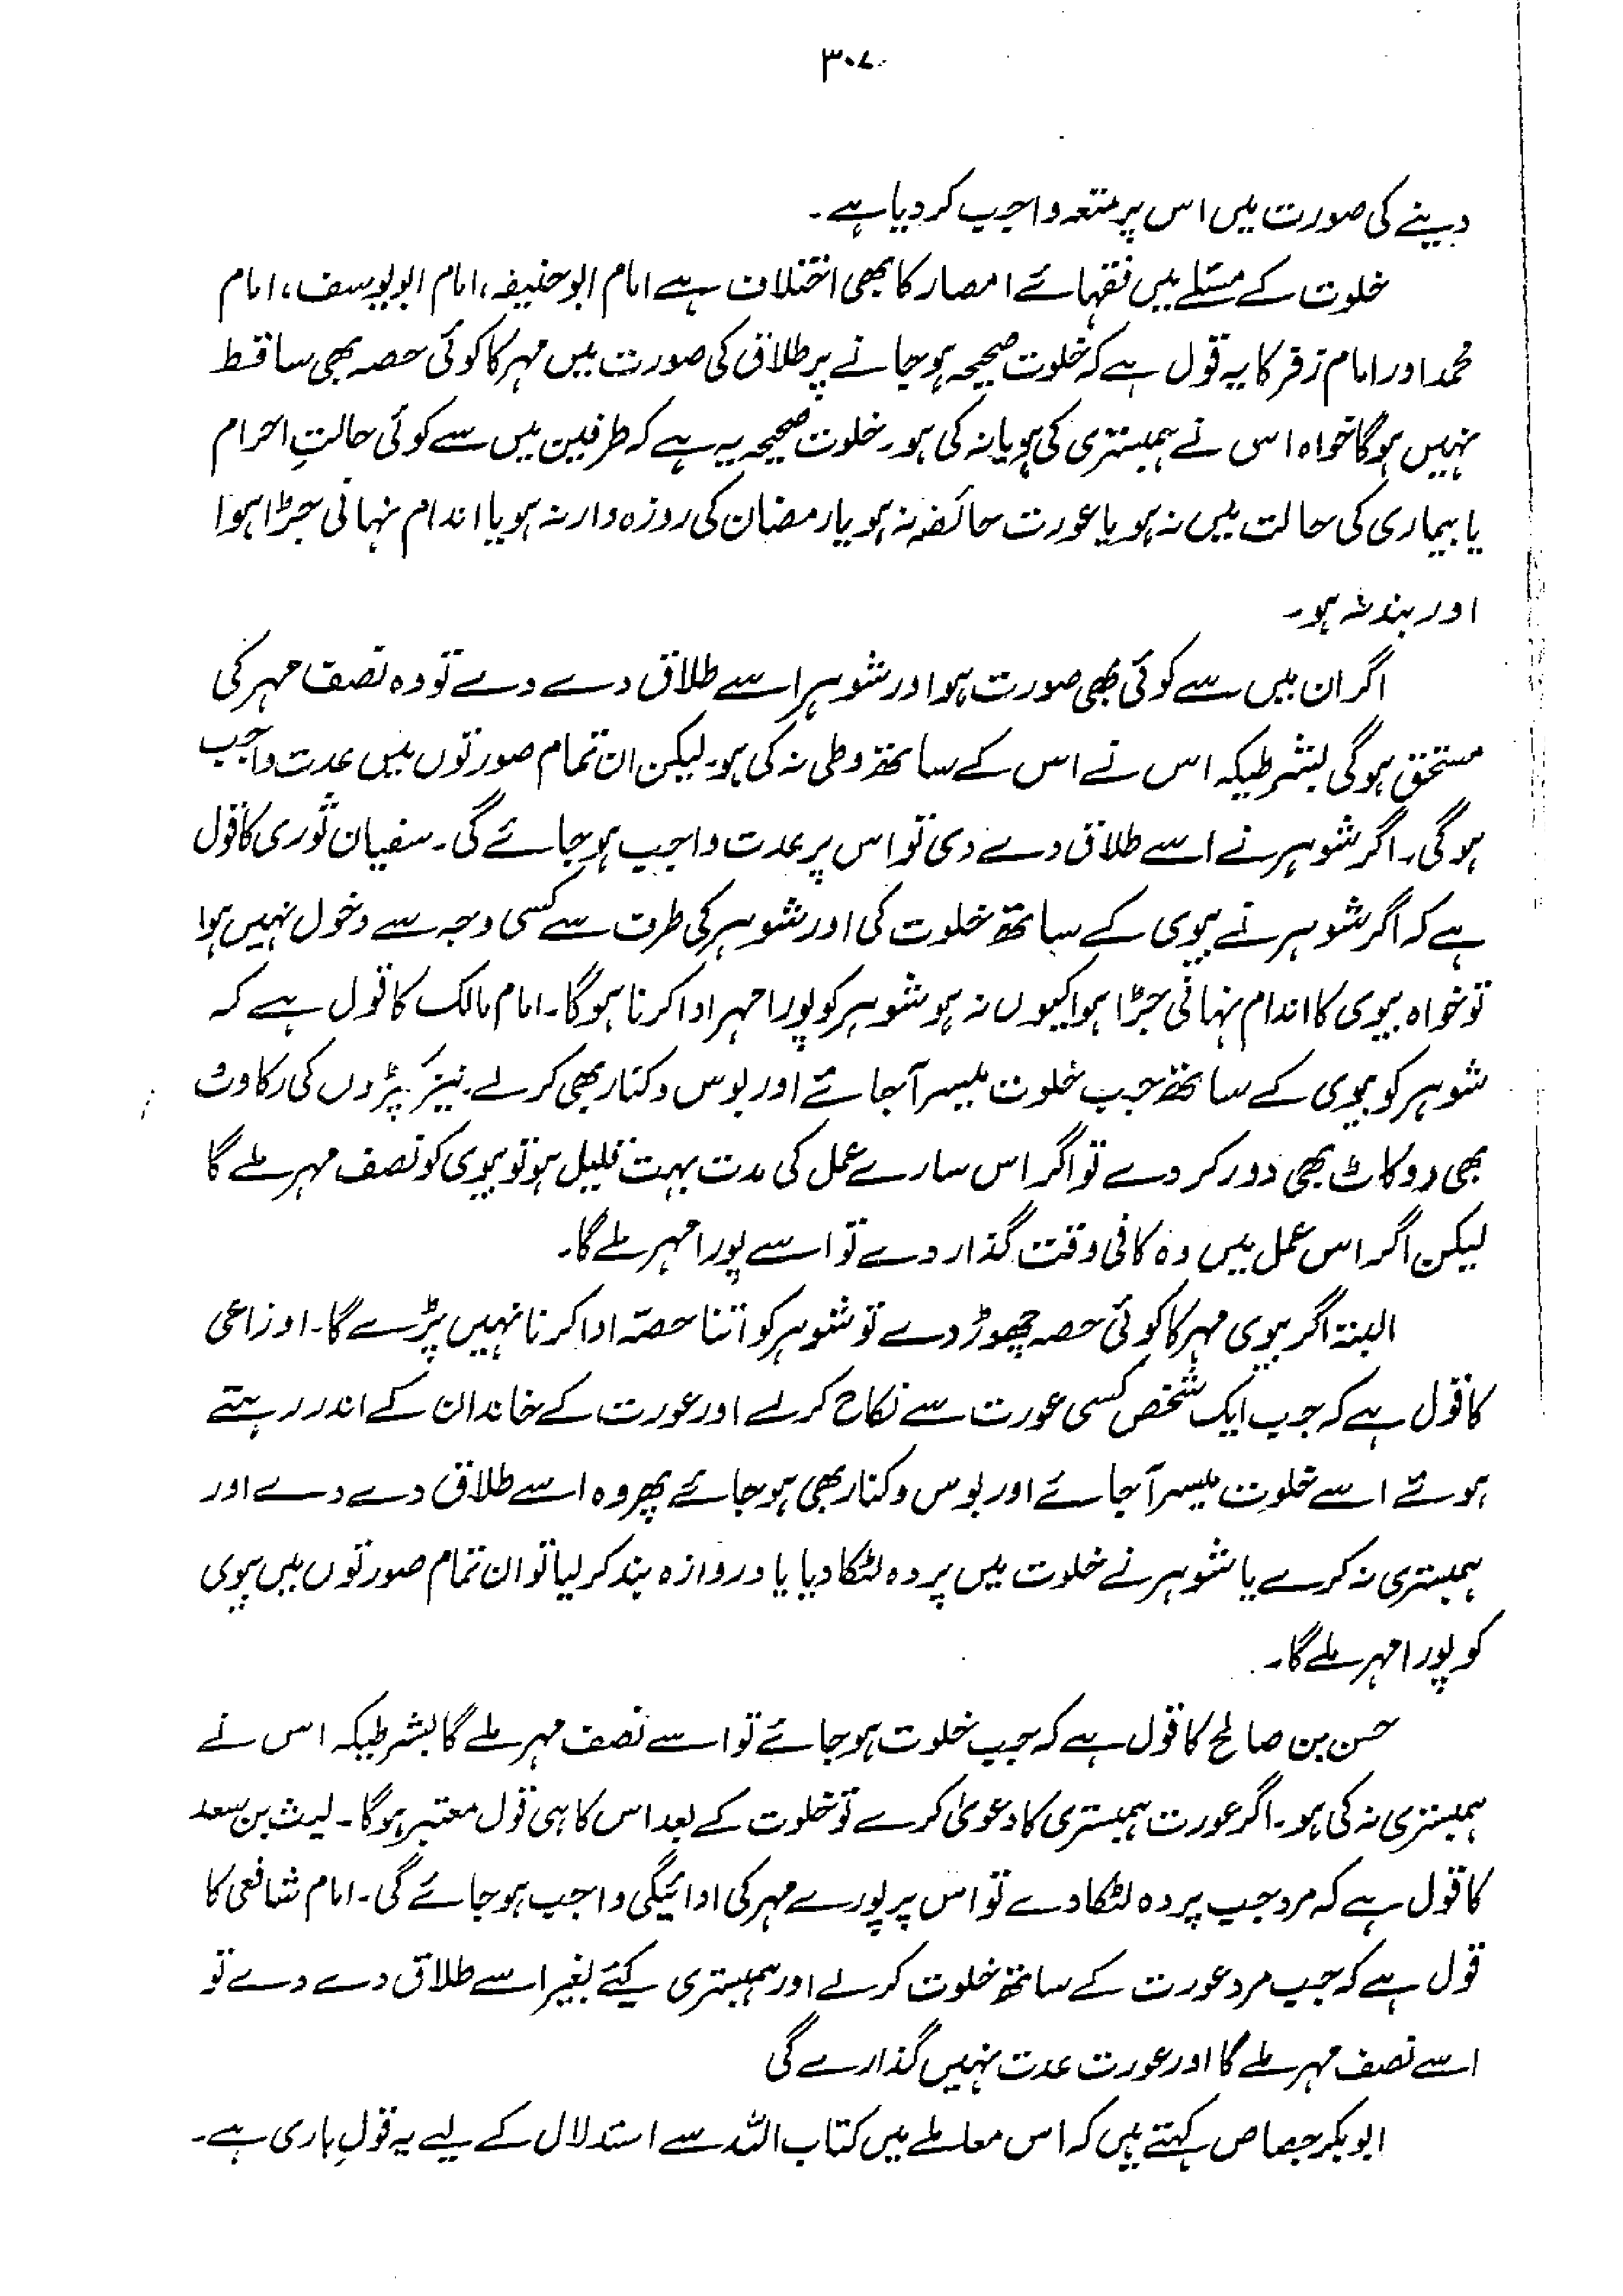 ۳۰۷
دینے کی صورت میں اس پر متعہ واجب کر دیا ہے۔
خلوت کے مسئلے میں فقہائے امصار کا بھی اختلاف ہے امام ابو حنیفہ، امام ابو یوسف، امام
محمد اور امام زفر کا یہ قول ہے کہ خلوت صحیحہ ہو جانے پر طلاق کی صورت میں مہر کا کوئی حصہ بھی ساقط
نہیں ہوگا خواہ اس نے ہمبستری کی ہو یا نہ کی ہو۔ خلوت صحیحہ یہ ہے کہ طرفین میں سے کوئی حالتِ احرام
یا بیماری کی حالت میں نہ ہو یا عورت حائضہ نہ ہو یا رمضان کی روزہ دار نہ ہو یا اندام نہانی جڑا ہوا
اور بند نہ ہو۔
اگر ان میں سے کوئی بھی صورت ہو اور شوہر اسے طلاق دے دے تو وہ نصف مہر کی
مستحق ہوگی بشرطیکہ اس نے اس کے ساتھ وطی نہ کی ہو۔ لیکن ان تمام صورتوں میں عدت واجب
ہوگی۔ اگر شوہر نے اسے طلاق دے دی تو اس پر عدت واجب ہو جائے گی۔ سفیان ثوری کا قول
ہے کہ اگر شوہر نے بیوی کے ساتھ خلوت کی اور شوہر کی طرف سے کسی وجہ سے دخول نہیں ہوا
تو خواہ بیوی کا اندام نہانی جڑا ہوا کیوں نہ ہو شوہر کو پورا مہر ادا کرنا ہوگا۔ امام مالک کا قول ہے کہ
شوہر کو بیوی کے ساتھ جب خلوت میسر آجائے اور بوس و کنار بھی کر لے۔ نیز کپڑوں کی رکاوٹ
بھی روکاٹ بھی دور کر دے تو اگر اس سارے عمل کی مدت بہت قلیل ہو تو بیوی کو نصف مہر ملے گا
لیکن اگر اس عمل میں وہ کافی وقت گذار دے تو اسے پورا مہر ملے گا۔
البتہ اگر بیوی مہر کا کوئی حصہ چھوڑ دے تو شوہر کو اتنا حصّہ ادا کرنا نہیں پڑے گا۔ اوزاعی
کا قول ہے کہ جب ایک شخص کسی عورت سے نکاح کر لے اور عورت کے خاندان کے اندر رہتے
ہوئے اسے خلوت میسر آجائے اور بوس و کنار بھی ہو جائے پھر وہ اسے طلاق دے دے اور
ہمبستری نہ کرے یا شوہر نے خلوت میں پردہ لٹکا دیا یا دروازہ بند کر لیا تو ان تمام صورتوں میں بیوی
کو پورا مہر ملے گا۔
حسن بن صالح کا قول ہے کہ جب خلوت ہو جائے تو اسے نصف مہر ملے گا بشرطیکہ اس نے
ہمبستری نہ کی ہو۔ اگر عورت ہمبستری کا دعویٰ کرے تو خلوت کے بعد اس کا ہی قول معتبر ہوگا۔ لیث بن سعد
کا قول ہے کہ مرد جب پردہ لٹکا دے تو اس پر پورے مہر کی ادائیگی واجب ہو جائے گی۔ امام شافعی کا
قول ہے کہ جب مرد عورت کے ساتھ خلوت کر لے اور ہمبستری کیئے بغیر اسے طلاق دے دے تو
اسے نصف مہر ملے گا اور عورت عدت نہیں گذارے گی
ابوبکر جصاص کہتے ہیں کہ اس معاملے میں کتاب اللہ سے استدلال کے لیے یہ قولِ باری ہے۔